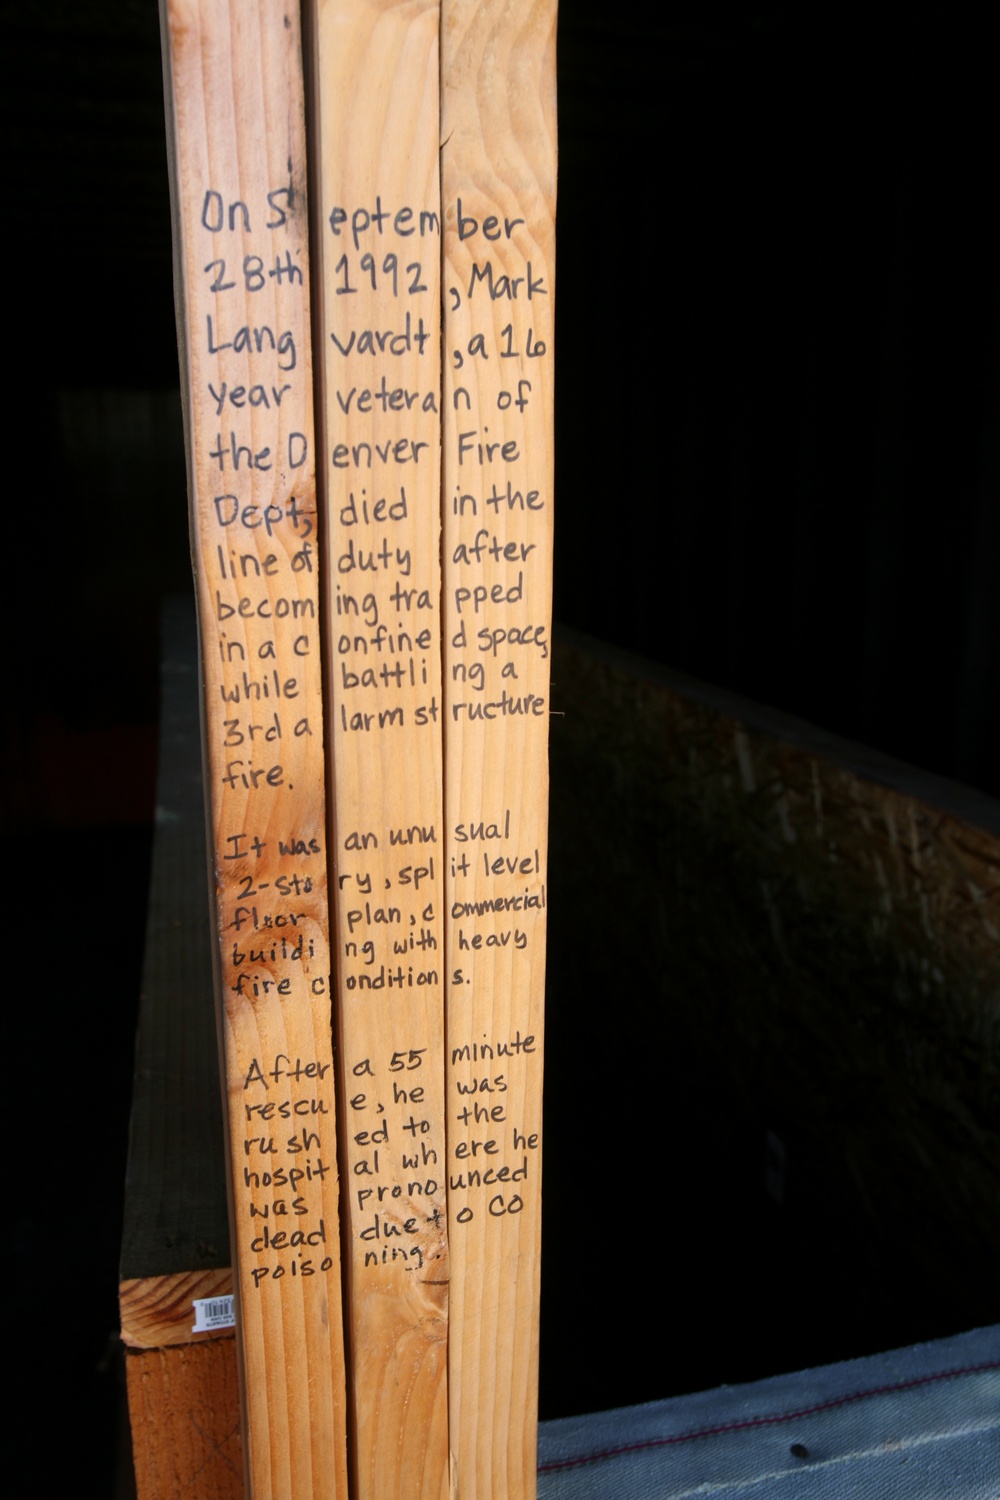 On September
28th 1992, Mark
Langvardt, a 16
year veteran of
the Denver Fire
Dept, died in the
line of duty after
becoming trapped
in a confined space,
while battling a
3rd alarm structure
fire.
It was an unusual
2-story, split level
floor plan, commercial
building with heavy
fire conditions.
After a 55 minute
rescue, he was
rushed to the
hospital where he
was pronounced
dead due to CO
poisoning.